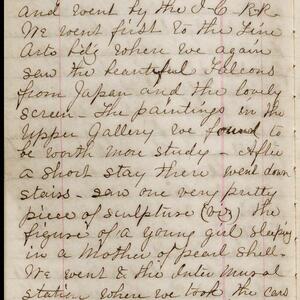 and went by the I. C. R.R.
We went first to the Fine
Arts b'l'g where we again
saw the beautiful Falcons
from Japan and the lovely
screen - The paintings in the
upper Gallery we found to
be worth more study - After
a short stay there went down
stairs - saw one very pretty
piece of sculpture (viz) the
figure of a young girl sleeping
in a Mother of pearl shell.
We went to the Intra Mural
station where we took the cars